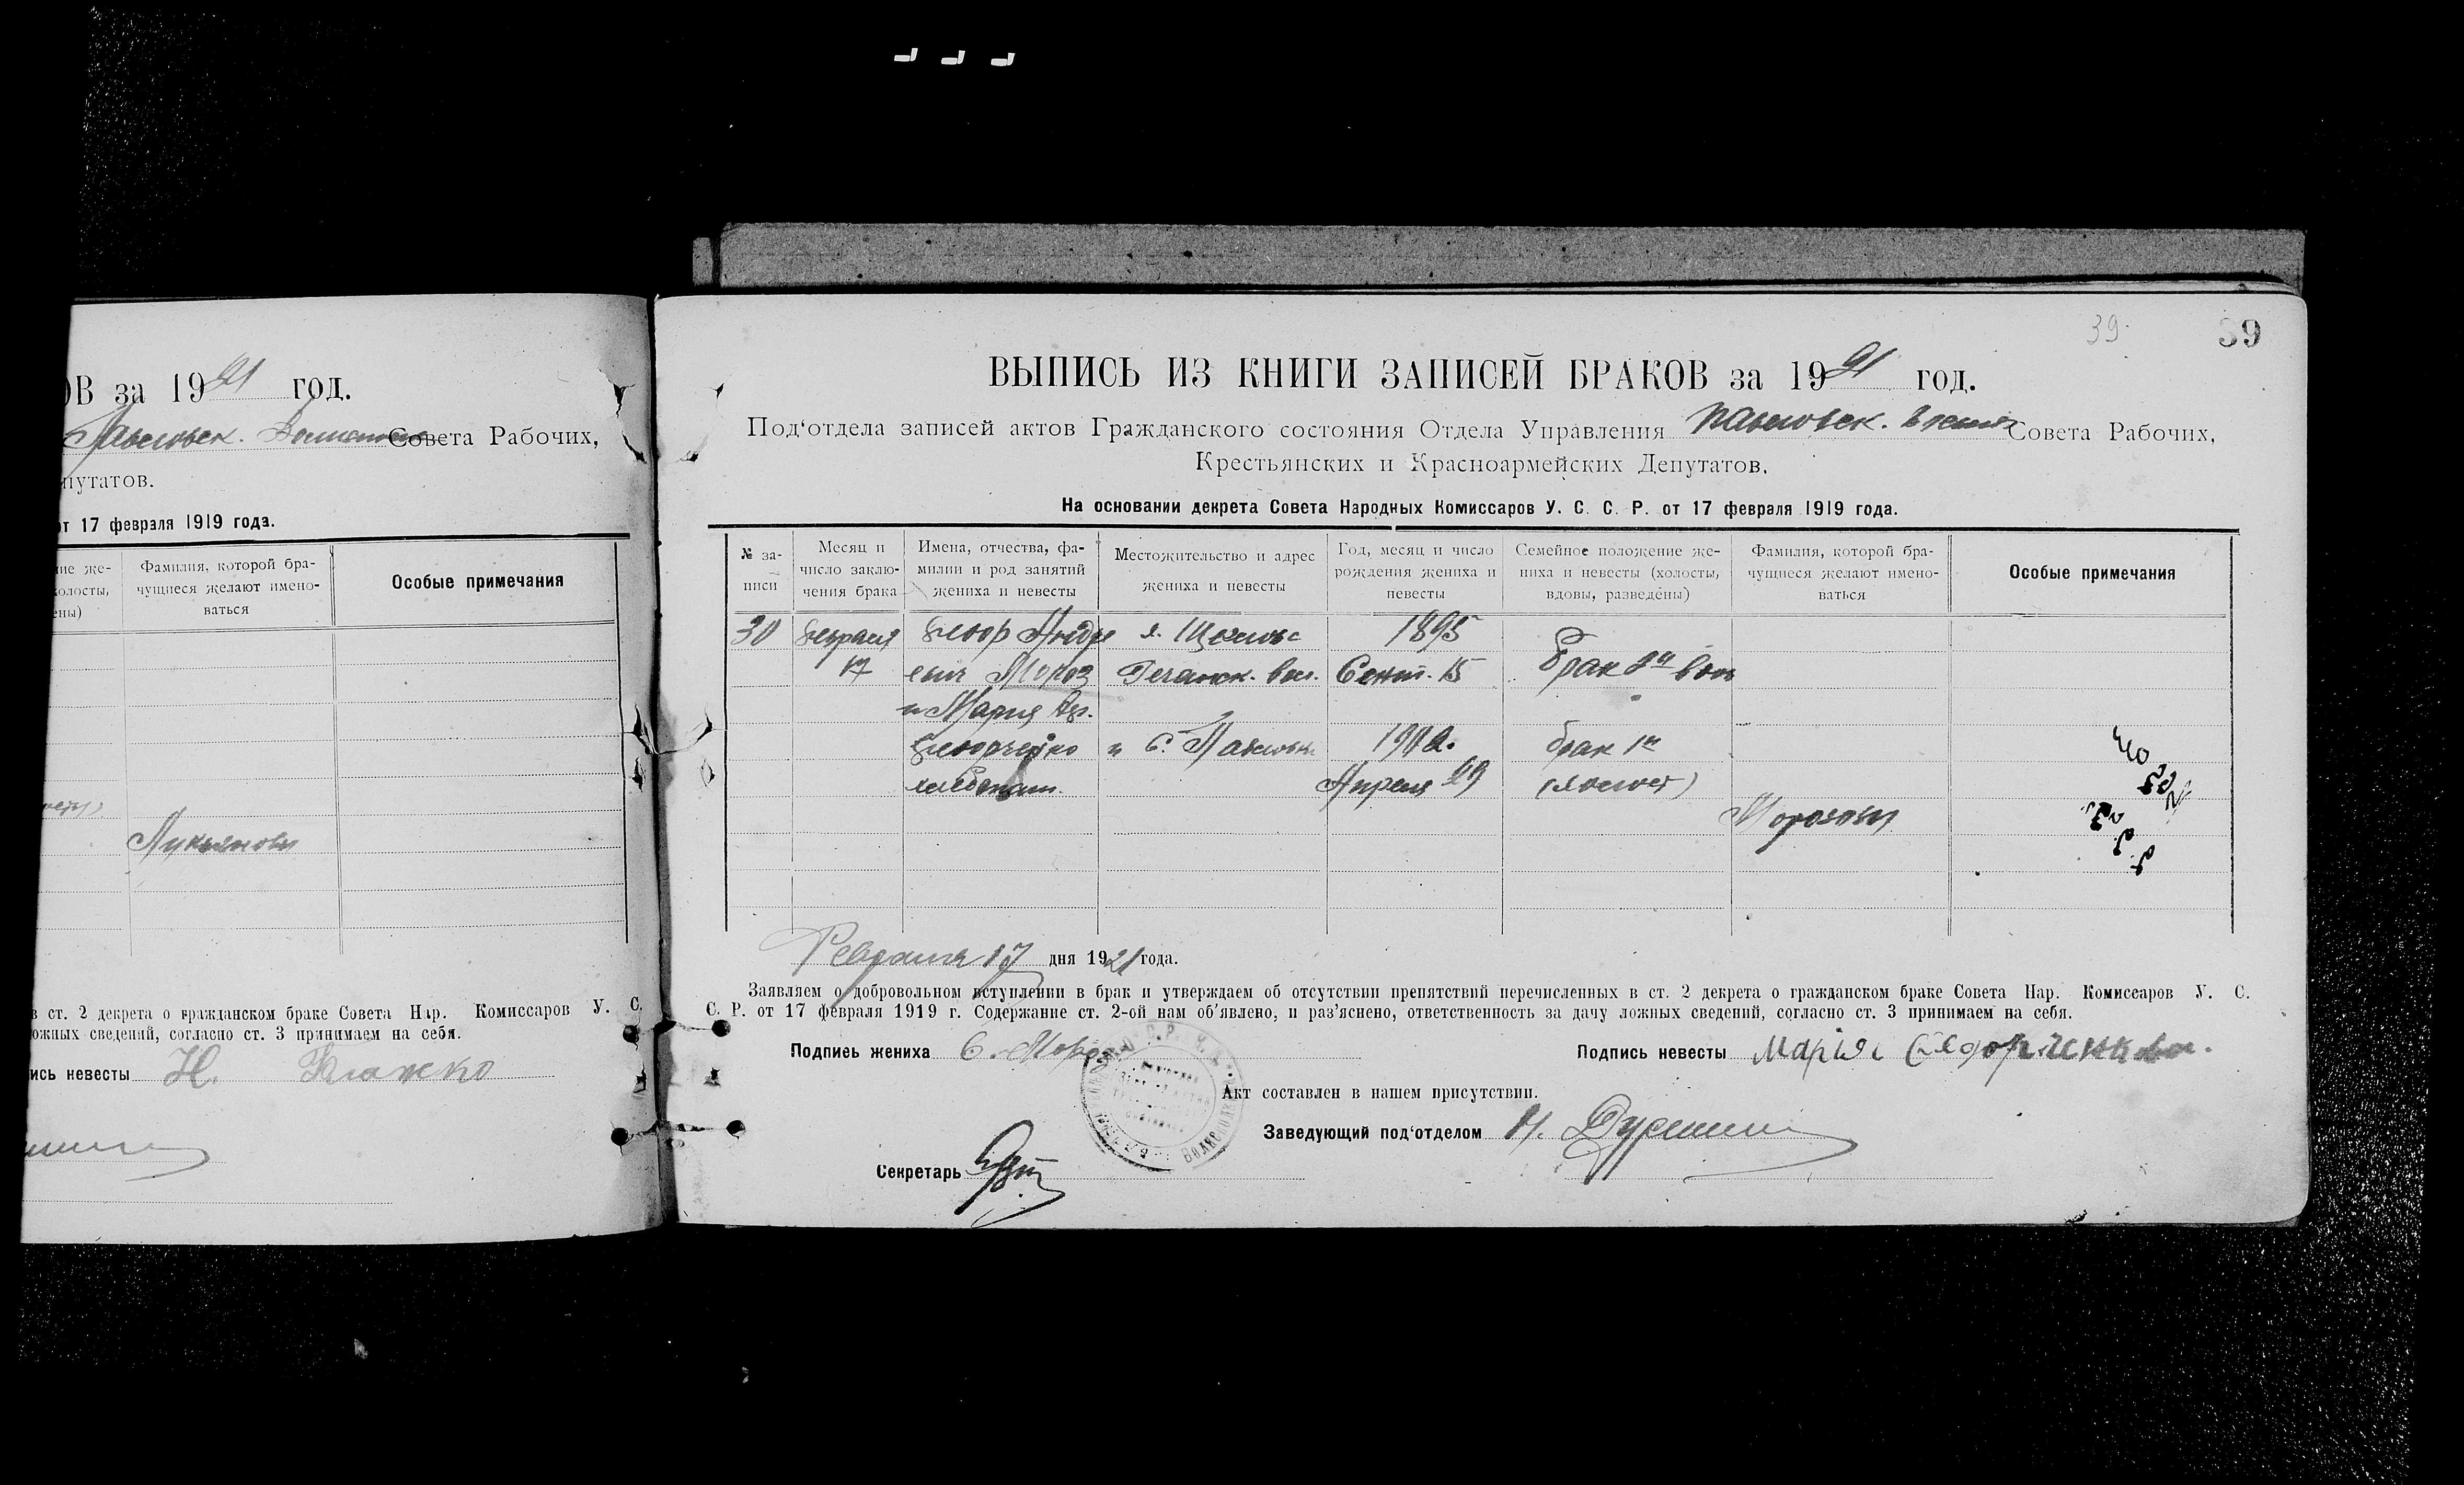 ОВ за 1921 год.
Павловск. Волисполк Совета Рабочих,
путатов.
от 17 февраля 1919 года.
ние же-
холосты,
ены)
Фамилия, которой бра-
чущиеся желают имено-
ваться
Особые примечания
Лукьяновы
в ст. 2 декрета о гражданском браке Совета Нар. Комиссаров У. С.
ожных сведений, согласно ст. 3 принимаем на себя.
ись невесты Н.
39
39
ВЫПИСЬ ИЗ КНИГИ ЗАПИСЕЙ БРАКОВ за 1921 год.
Под‘отдела записей актов Гражданского состояния Отдела Управления Павловск. Совета Рабочих,
Крестьянских и Красноармейских Депутатов.
На основании декрета Совета Народных Комиссаров У. С. С. Р. от 17 февраля 1919 года.
№ за-
писи
Месяц и
число заклю-
чения брака
Имена, отчества, фа-
милии и род занятий
жениха и невесты
Местожительство и адрес
жениха и невесты
Год, месяц и число
рождения жениха и
невесты
Семейное положение же-
ниха и невесты (холосты,
вдовы, разведены)
Фамилия, которой бра-
чущиеся желают имено-
ваться
Особые примечания
30 февраля Андре 1895
17 евич Мороз вол. Сент. 15 Брак 2й вдов
и Мария
и с. Павловки брак 1й
хлебопаш. Апреля 29 (холост)
Морозовы
Февраля 17 дня 1921 года.
Заявляем о добровольном вступлении в брак и утверждаем об отсутствии препятствий перечисленных в ст. 2 декрета о гражданском браке Совета Нар. Комиссаров У. С.
С. Р. от 17 февраля 1919 г. Содержание ст. 2-ой нам об’явлено, и раз’яснено, ответственность за дачу ложных сведений, согласно ст. 3 принимаем на себя.
Подпись жениха С. Мороз Подпись невесты Марія
Акт составлен в нашем присутствии.
Заведующий под‘отделом
Секретарь